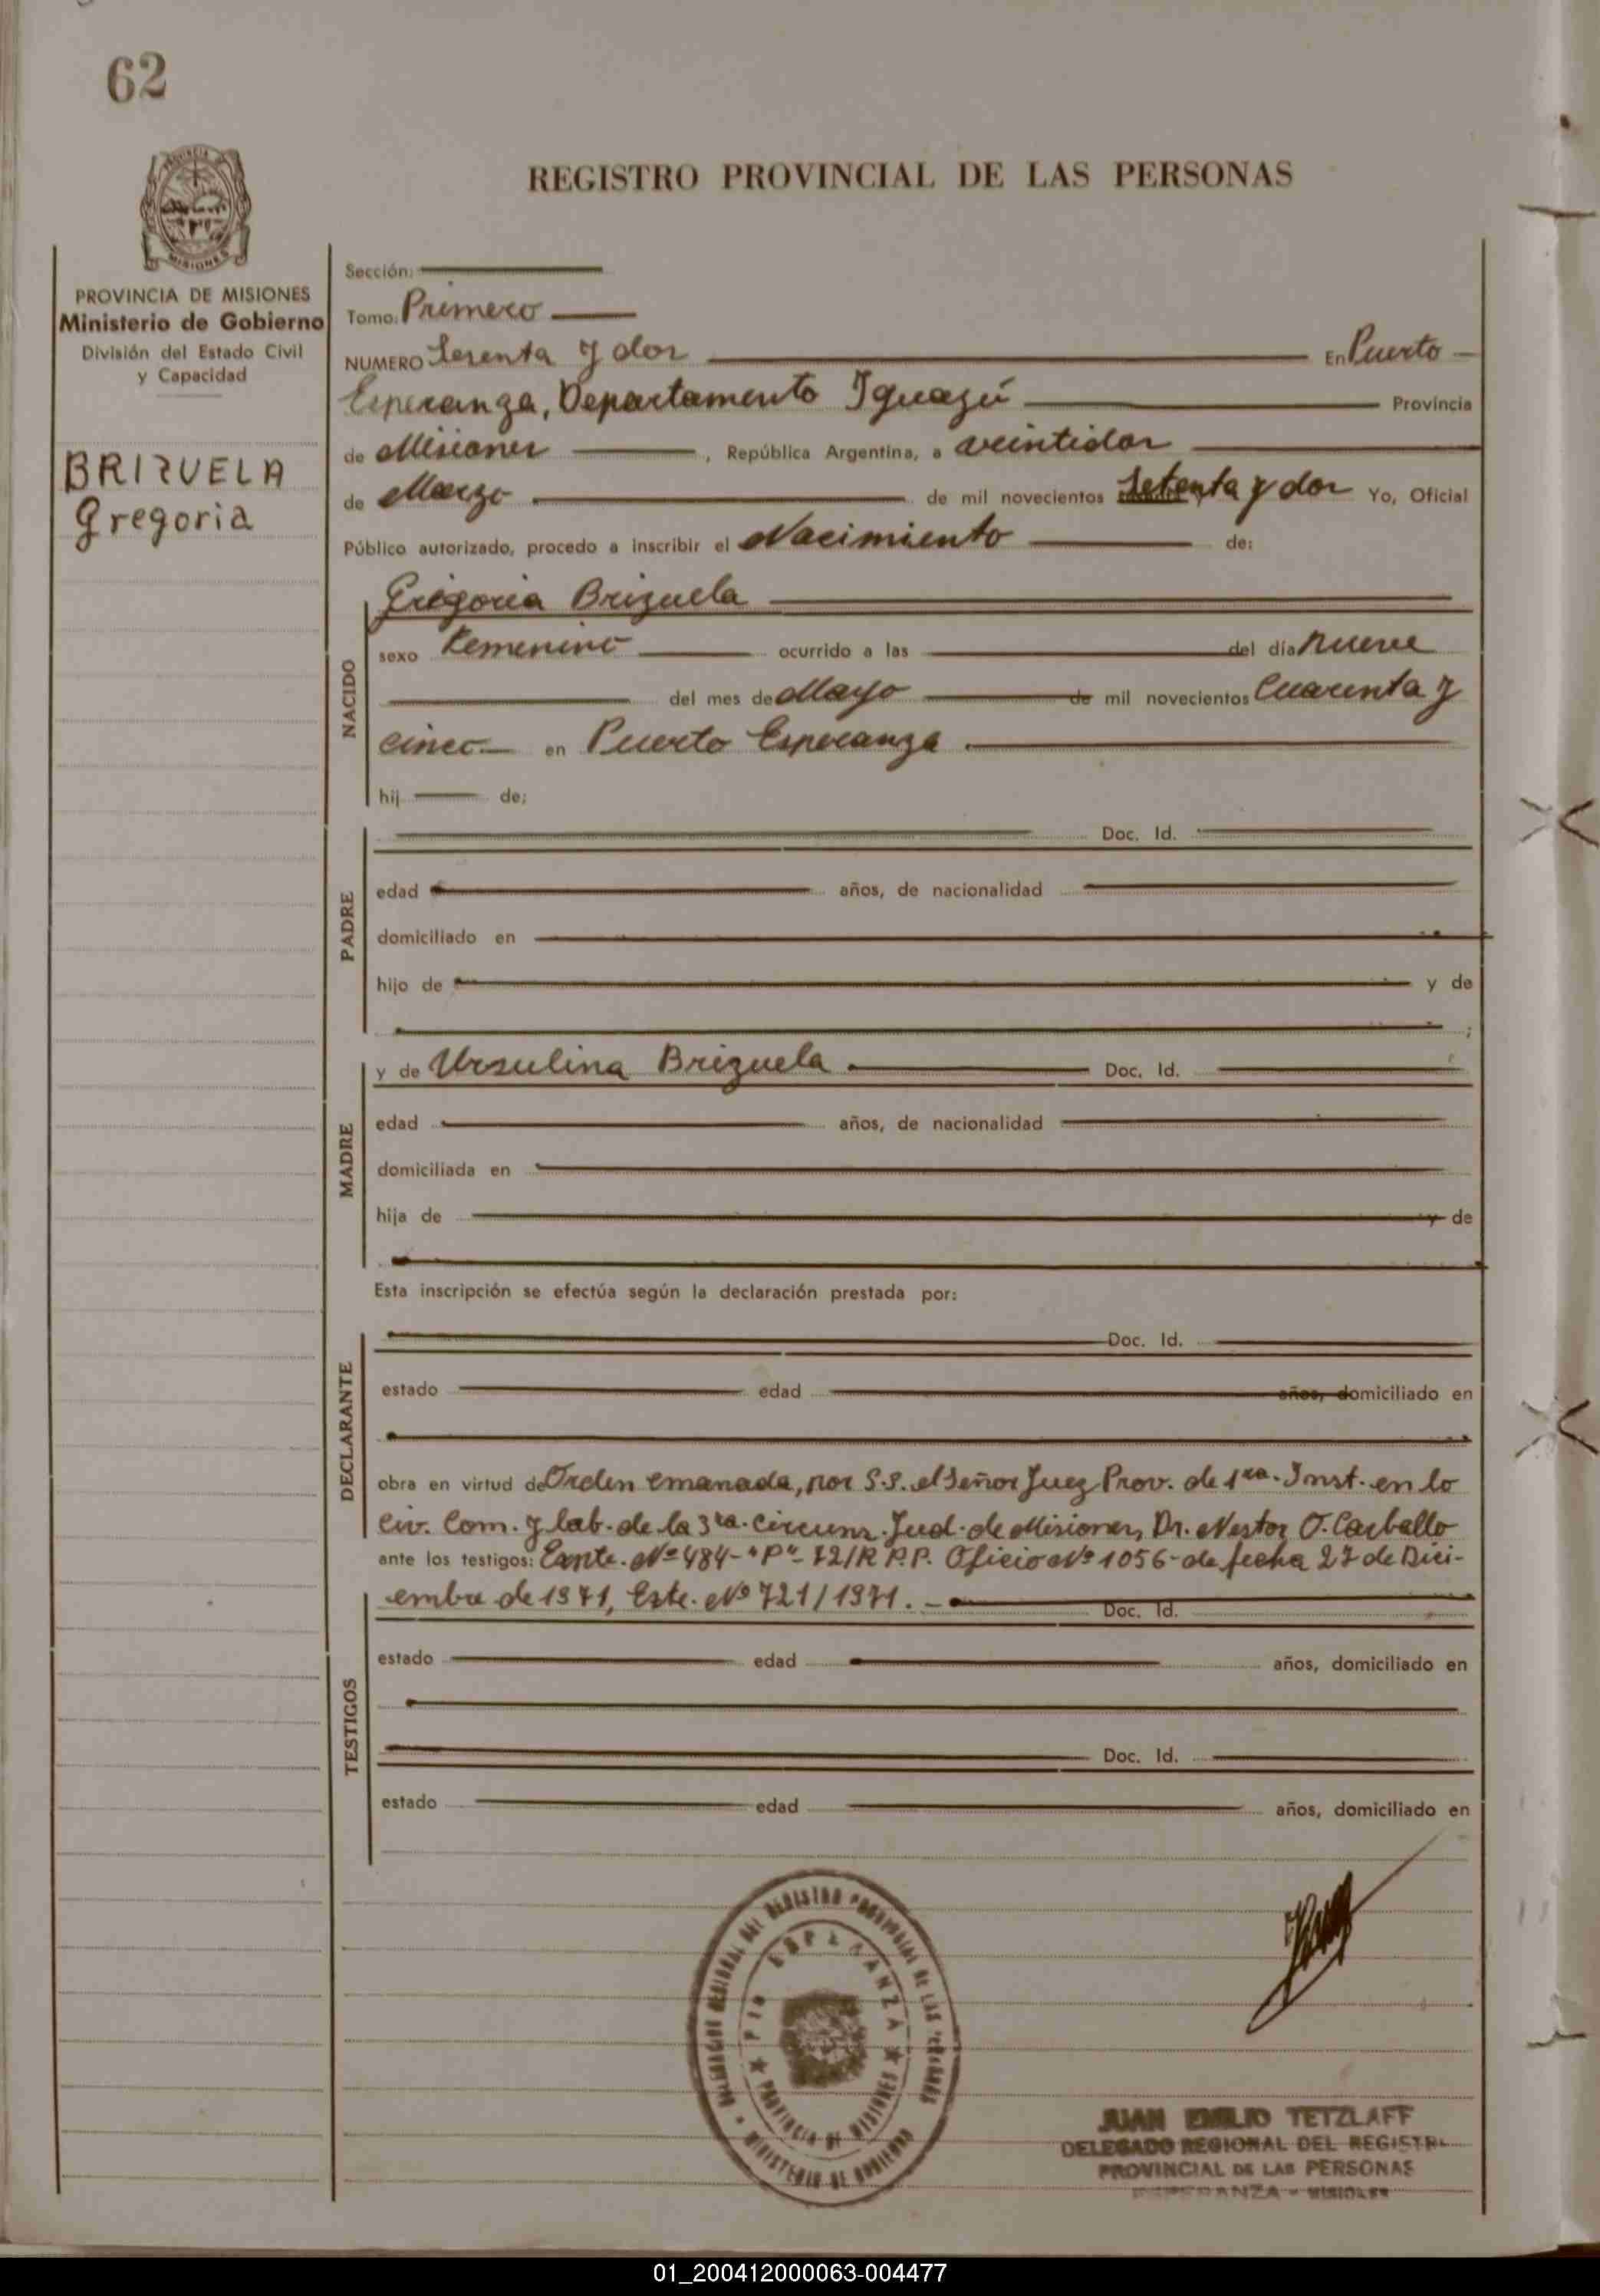 62
PROVINCIA DE
MISIONES
REGISTRO PROVINCIAL DE LAS PERSONAS
PROVINCIA DE MISIONES
Ministerio de Gobierno
División del Estado Civil
y Capacidad
BRIZUELA
Gregoria
Sección:
Tomo: Primero
NUMERO Sesenta y dos En Puerto
Esperanza, Departamento Iguazú Provincia
de Misiones , República Argentina, a veintidos
de Marzo de mil novecientos Setenta y dos Yo, Oficial
Público autorizado, procedo a inscribir el Nacimiento de:
NACIDO
Gregoria Brizuela
sexo Femenino ocurrido a las del día Nueve
del mes de Mayo de mil novecientos Cuarenta y
cinco en Puerto Esperanza.
hij de:
PADRE
Doc. Id.
edad años, de nacionalidad
domiciliado en
hijo de y de
;
MADRE
y de Ursulina Brizuela Doc. Id.
edad años, de nacionalidad
domiciliada en
hija de y de
Esta inscripción se efectúa según la declaración prestada por:
DECLARANTE
Doc. Id.
estado edad años, domiciliado en
obra en virtud de Orden emanada, por S.S. el Señor Juez Prov. de 1ra. Inst. en lo
Civ. Com. y lab. de la 3ra. Circuns. Jud. de Misiones, Dr. Nestor O. Carballo
ante los testigos: Expte. Nº 484-"P"-72/R P.P. Oficio Nº 1056- de fecha 27 de Dici-
embre de 1971, Exte. Nº 721/1971. - Doc. Id.
TESTIGOS
estado edad años, domiciliado en
Doc. Id.
estado edad años, domiciliado en
DELEGACION REGIONAL DEL REGISTRO PROVINCIAL DE LAS PERSONAS
MINISTERIO DE GOBIERNO
Pto ESPERANZA
PROVINCIA DE MISIONES
JUAN EMILIO TETZLAFF
DELEGADO REGIONAL DEL REGISTRO
PROVINCIAL DE LAS PERSONAS
ESPERANZA - MISIONES
01_200412000063-004477